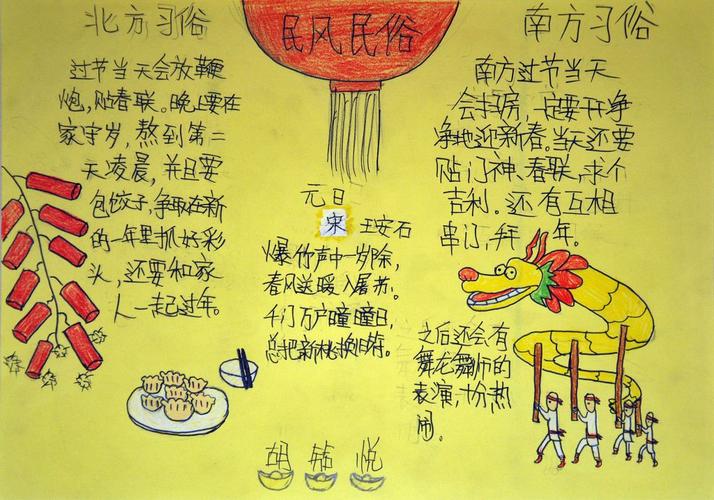 民风民俗
北方习俗
过节当天会放鞭
炮,贴春联。晚上要在
家守岁,熬到第二
天凌晨,并且要
包饺子,争取在新
的一年里抓好彩
头,还要和家
人一起过年。
元日
宋 王安石
爆竹声中一岁除,
春风送暖入屠苏。
千门万户曈曈日,
总把新桃换旧符。
南方习俗
南方过节当天
会扫房,一定要干净
净地迎新春。当天还要
贴门神、春联,求个
吉利。还有互相
串门,拜年。
之后还会有
舞龙舞师的
表演,十分热
闹。
胡 悦